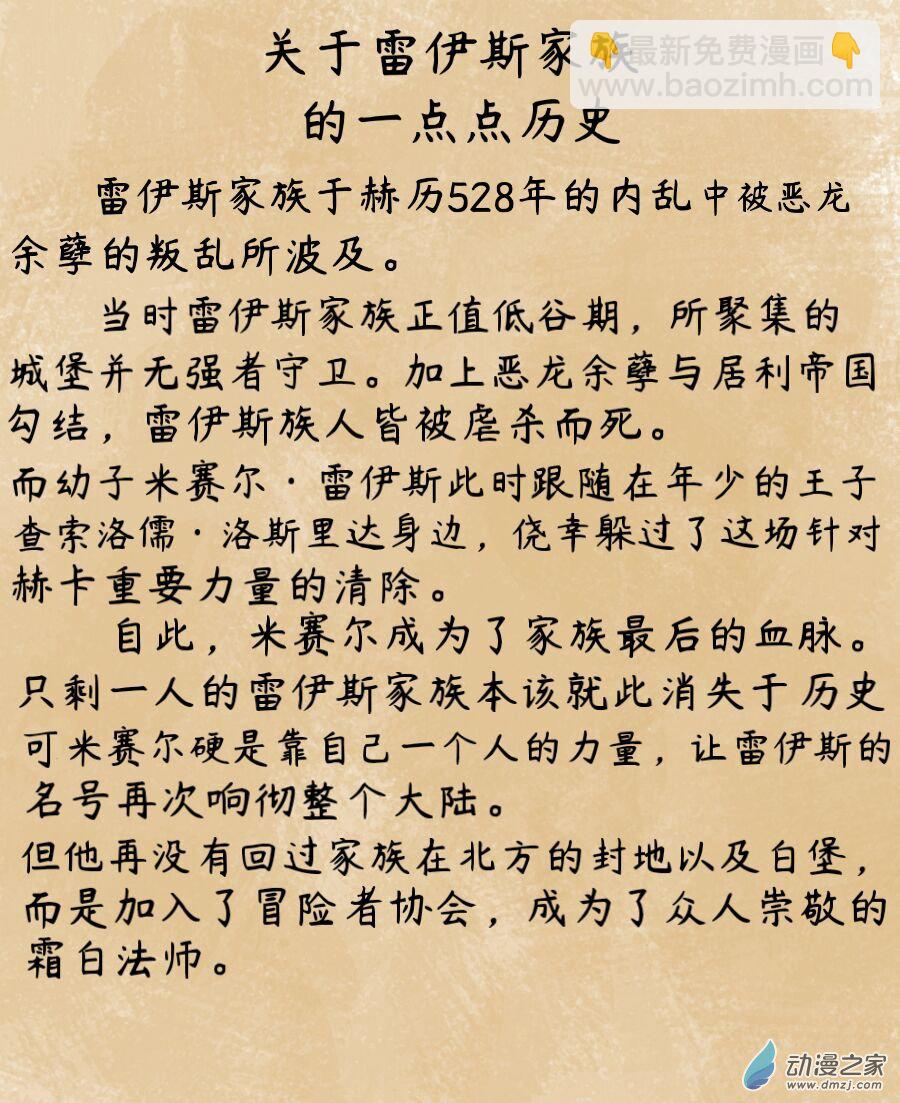 关于雷伊斯家族
的一点点历史
👇最新免费漫画👇
www.baozimh.com
雷伊斯家族于赫历528年的内乱中被恶龙
余孽的叛乱所波及。
当时雷伊斯家族正值低谷期，所聚集的
城堡并无强者守卫。加上恶龙余孽与居利帝国
勾结，雷伊斯族人皆被虐杀而死。
而幼子米赛尔·雷伊斯此时跟随在年少的王子
查索洛儒·洛斯里达身边，侥幸躲过了这场针对
赫卡重要力量的清除。
自此，米赛尔成为了家族最后的血脉。
只剩一人的雷伊斯家族本该就此消失于历史
可米赛尔硬是靠自己一个人的力量，让雷伊斯的
名号再次响彻整个大陆。
但他再没有回过家族在北方的封地以及白堡，
而是加入了冒险者协会，成为了众人崇敬的
霜白法师。
动漫之家
www.dmzj.com